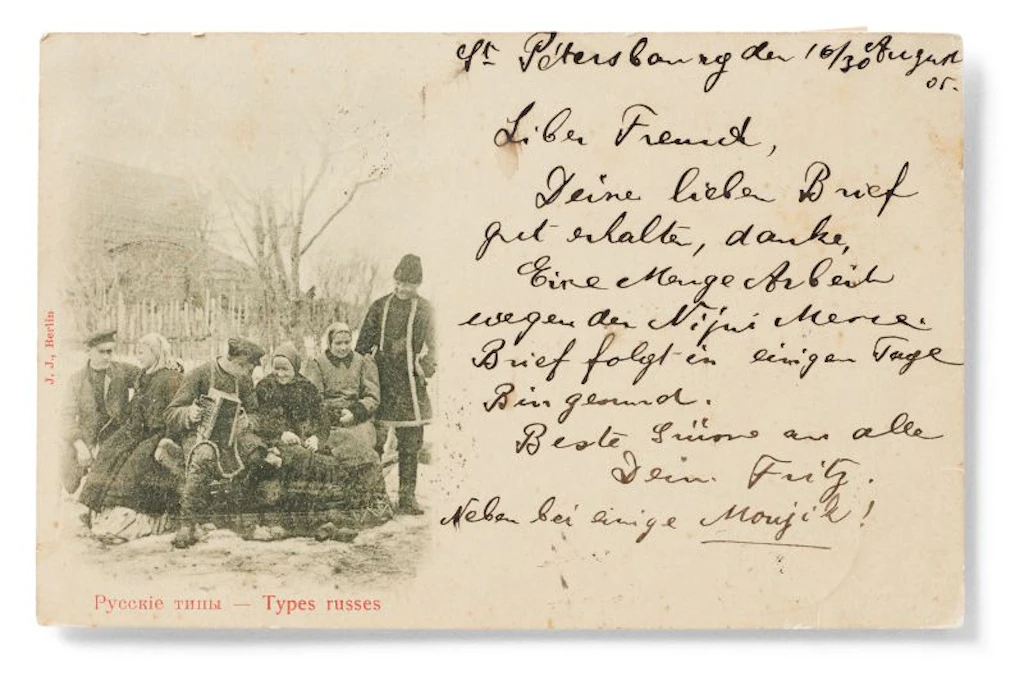 St. Pétersbourg den 16/30 August
05.
Liber Freund,
Deine lieben Brief
gut erhalten, danke,
Eine Menge Arbeit
wegen der Nijni Messe.
Brief folgt in einigen Tage
Bin gesund.
Beste Grüsse an alle
Dein Fritz.
Neben bei einige Moujik!
J. J., Berlin
Русскіе типы — Types russes